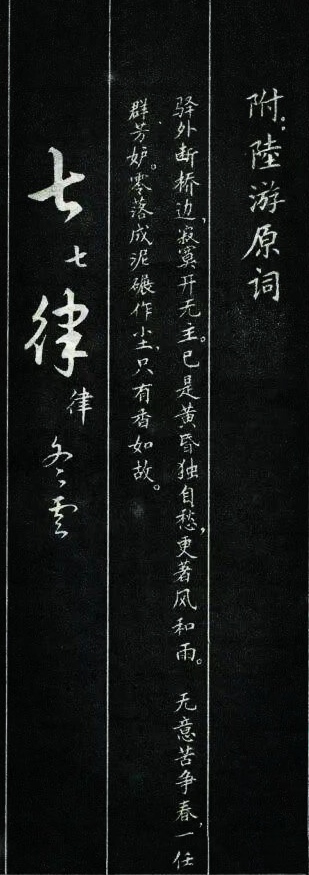 附：陸游原词
驿外断桥边，寂寞开无主。已是黄昏独自愁，更著风和雨。 无意苦争春，一任
群芳妒。零落成泥碾作尘，只有香如故。
七七律律冬云